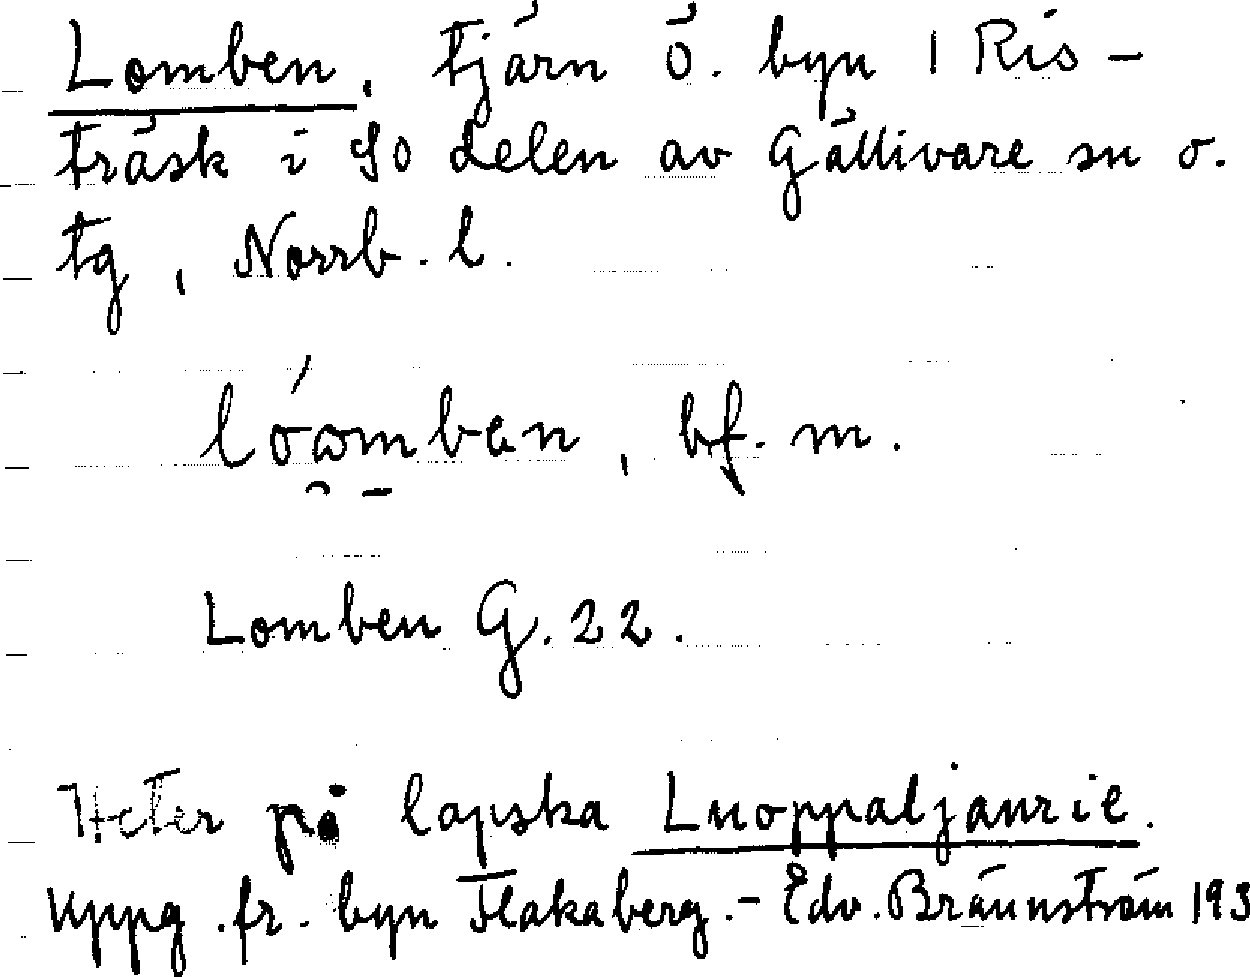 Lomben, tjärn ö. byn i Ris-
träsk i SO delen av Gällivare sn o.
tg, Norrb. l.
lóωmban, bf. m.
Lomben G. 22.
Heter på lapska Luoppaljaurie.
Uppg. fr. byn Flakaberg. - Edv. Brännström 193